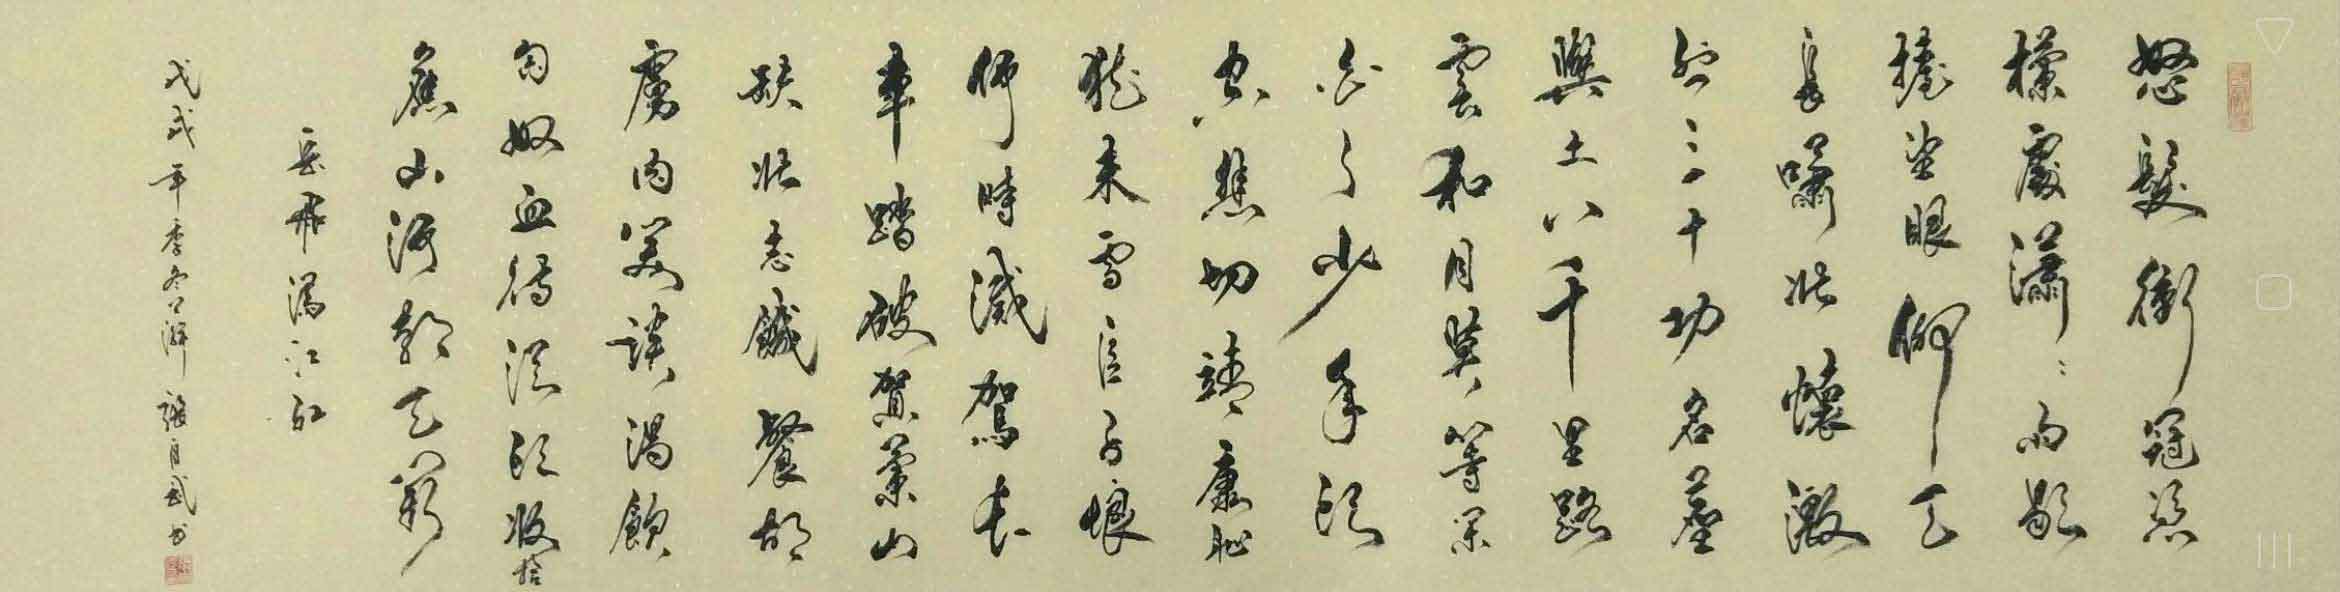 怒髮衝冠憑
欄處瀟瀟雨歇
擡望眼仰天
長嘯壯懷激
烈三十功名塵
與土八千里路
雲和月莫等閑
白了少年頭
空悲切靖康恥
猶未雪臣子恨
何時滅駕長
車踏破賀蘭山
缺壯志饑餐胡
虜肉笑談渴飲
匈奴血待從頭收拾
舊山河朝天闕
岳飛滿江紅
戊戌年季冬 張自武书